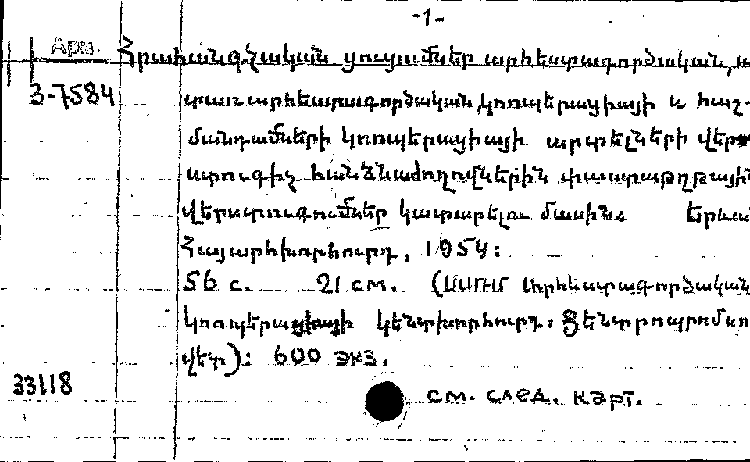 -1-
Арм. Հրահանգչական ցուցումներ արհեստագործական, ա
3-7584 տառ արհեստագործական կոոպերացիայի և հաշ-
մանդամների կոոպերացիայի արտելների վեր
ստուգիչ հանձնաժողովներին փաստաթղթային
վերստուգումներ կատարելու մասին։ Երևան
Հայպետխորհուրդ, 1954։
56 с. 21 см. (ՍՍՌՄ արհեստագործական
կոոպերացիայի կենտխորհուրդ։ Ցենտրոպրոմսո
վետ)։ 600 экз.
33118
см. след. карт.